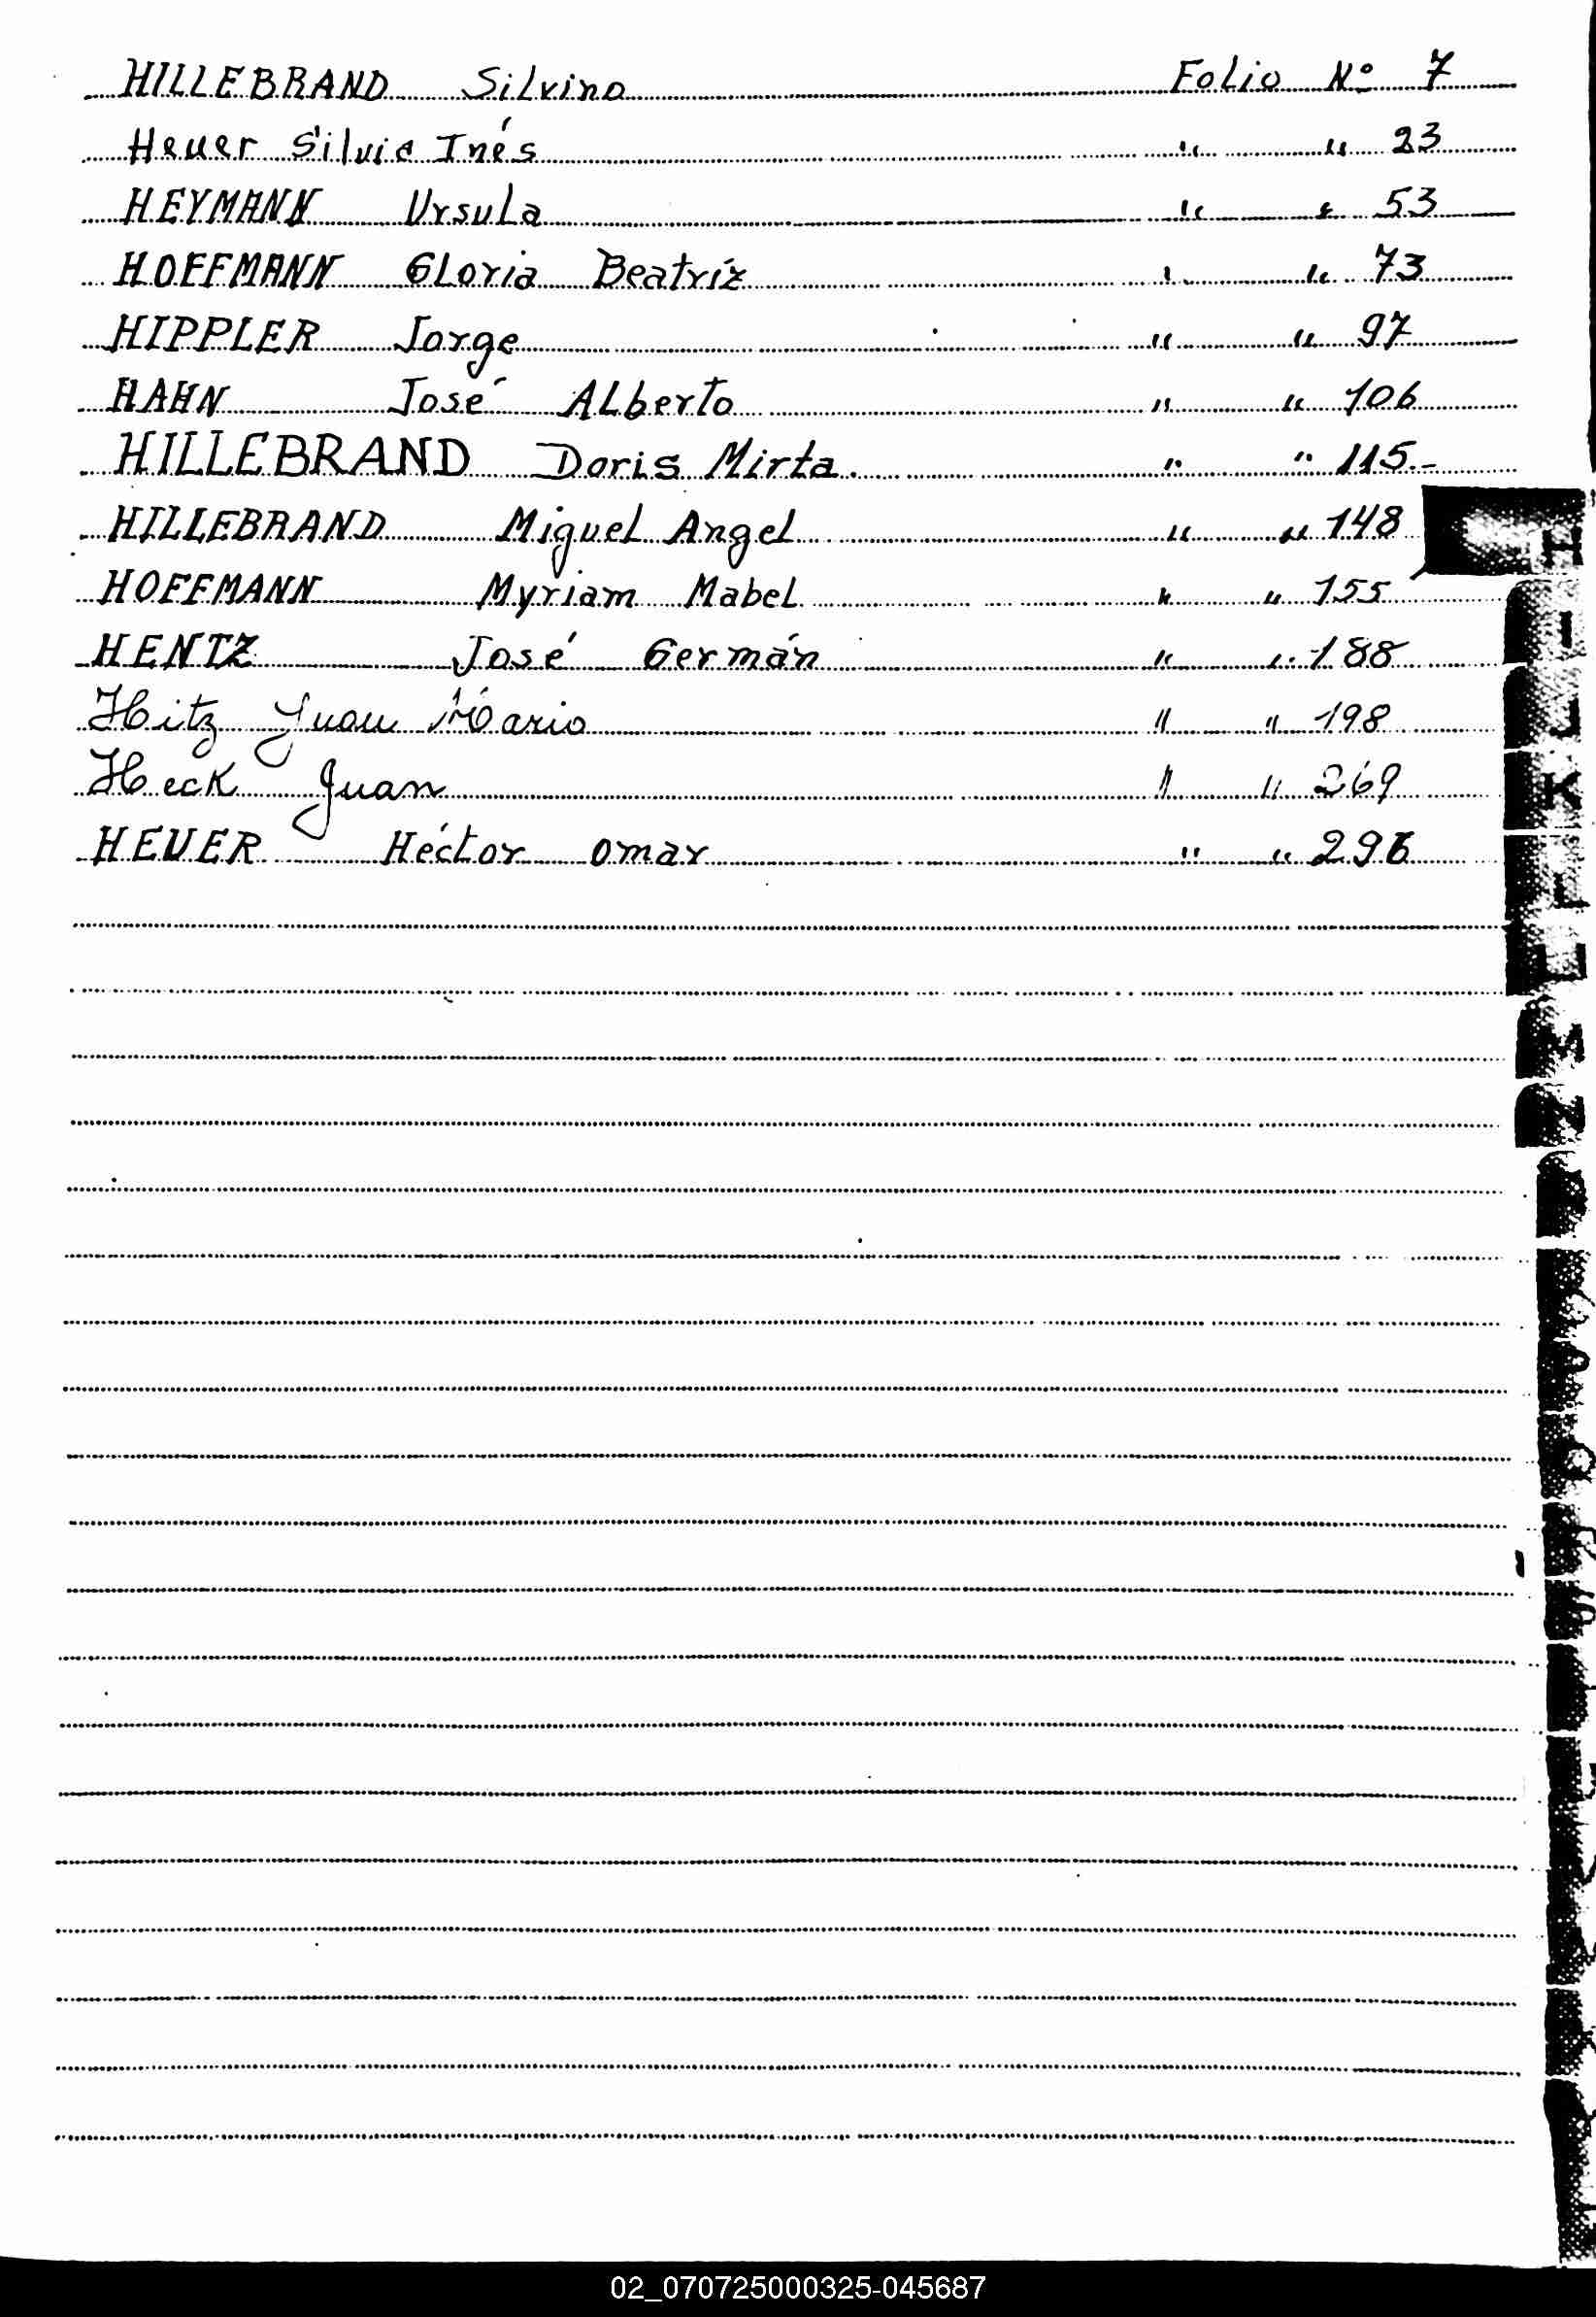 HILLEBRAND Silvino Folio Nº 7
Heuer Silvia Inés " " 23
HEYMANN Ursula " " 53
HOFFMANN Gloria Beatríz " " 73
HIPPLER Jorge " " 97
HAHN José Alberto " " 106
HILLEBRAND Doris Mirta. " " 115.-
HILLEBRAND Miguel Angel " " 148
HOFFMANN Myriam Mabel " " 155
HENTZ José Germán " " 188
Hitz Juan Mario " " 198
Heck Juan " " 269
HEUER Héctor Omar " " 296
H
I-J
K
L
M
N
02_070725000325-045687